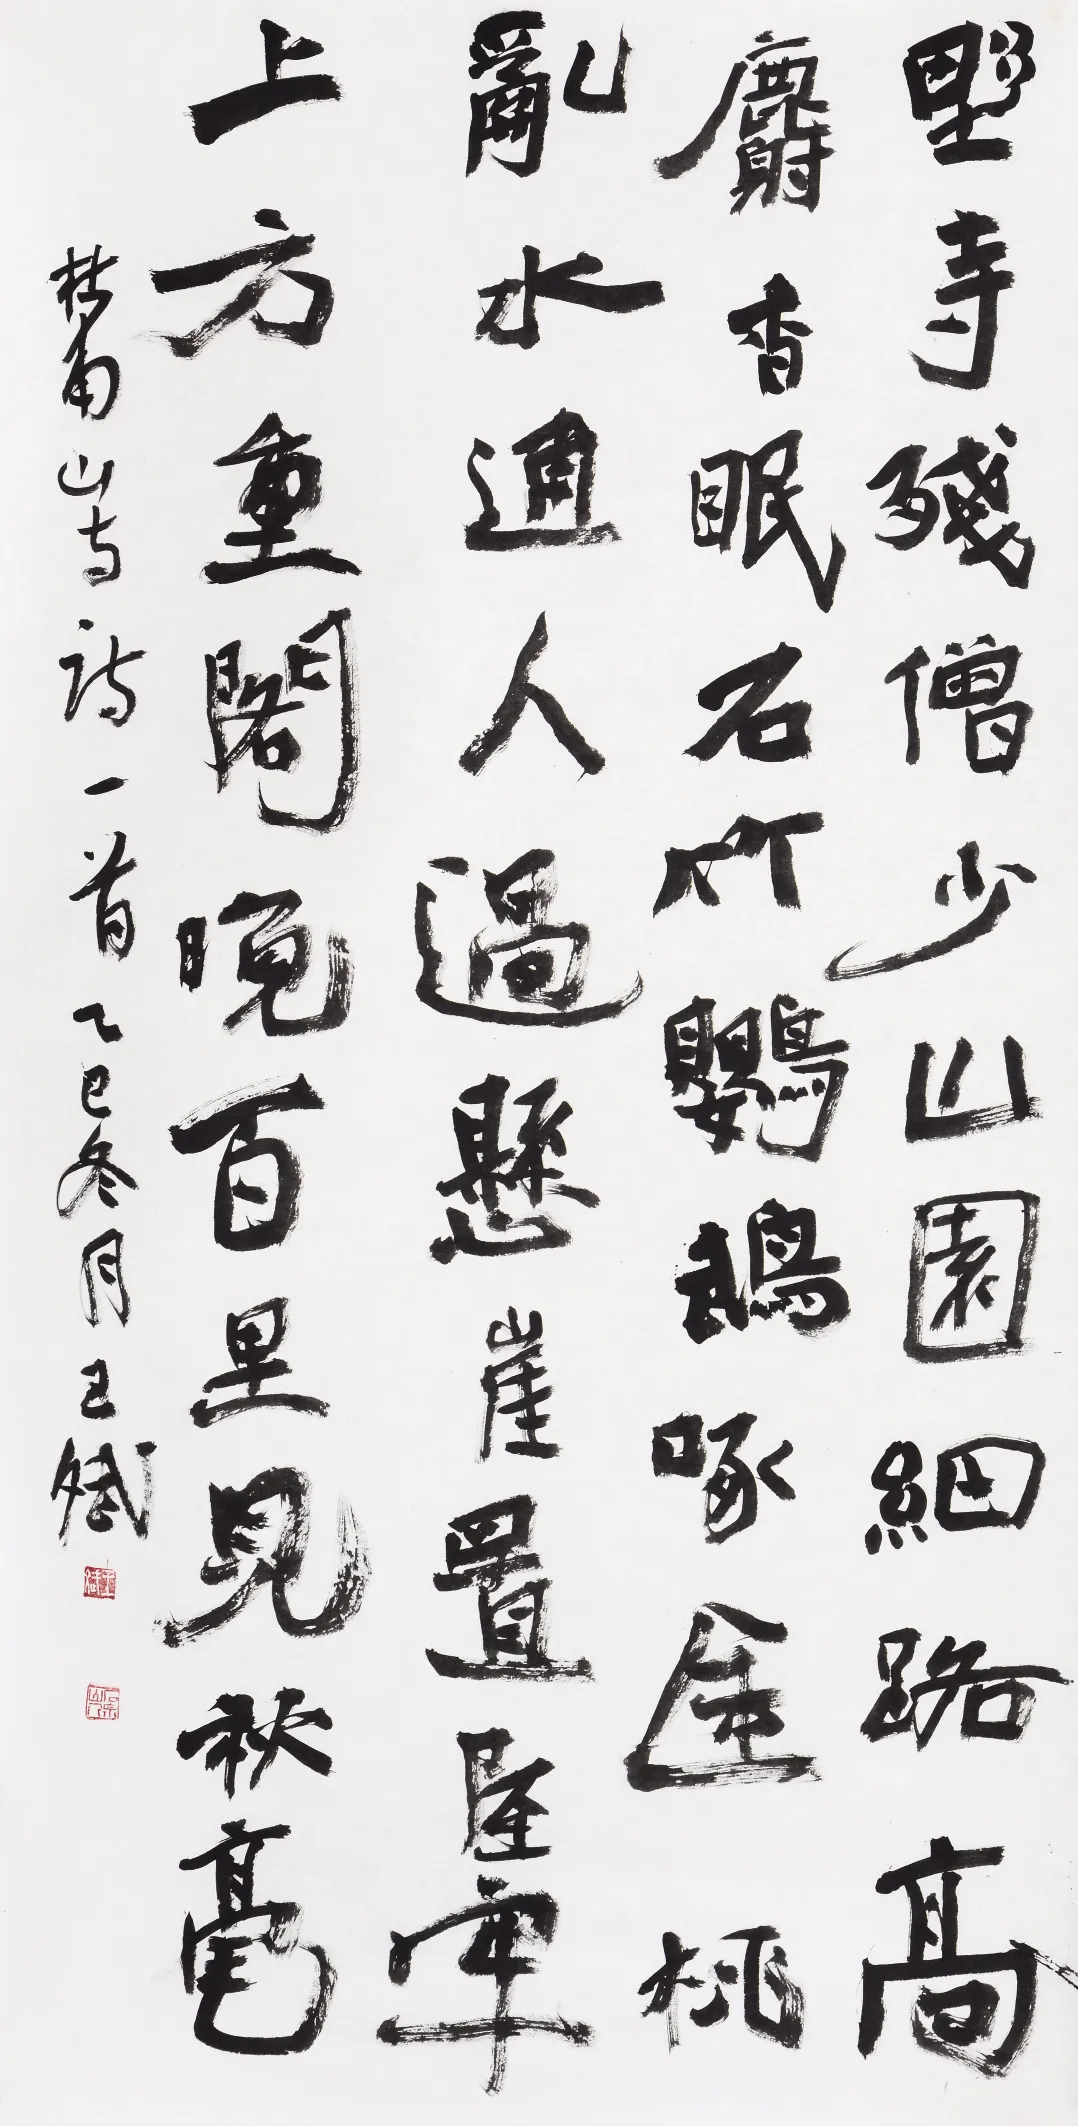 野寺殘僧少山園細路高
麝香眠石竹鸚鵡啄金桃
亂水通人過懸崖置屋牢
上方重閣晚百里見秋毫
杜甫山寺詩一首乙巳冬月王斌
王斌